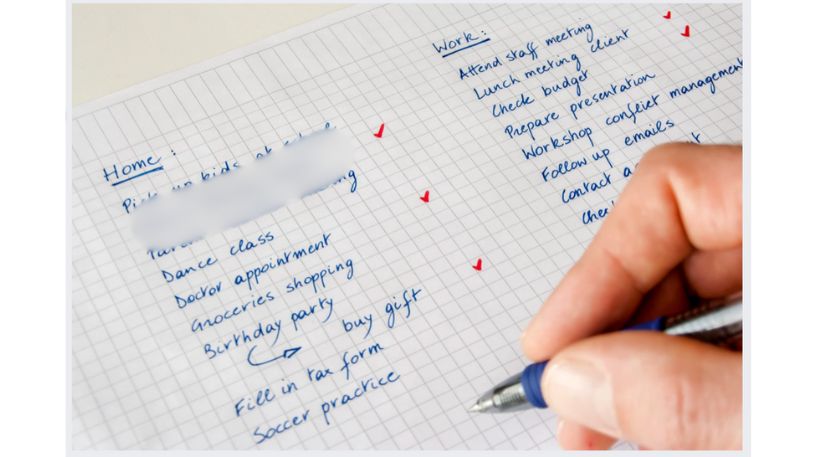 Home:
Pick up kids at
Dance class
Doctor appointment
Groceries shopping
Birthday party
buy gift
Fill in tax form
Soccer practice
Work:
Attend staff meeting
Lunch meeting client
Check budget
Prepare presentation
Workshop conflict management
Follow up emails
Contact